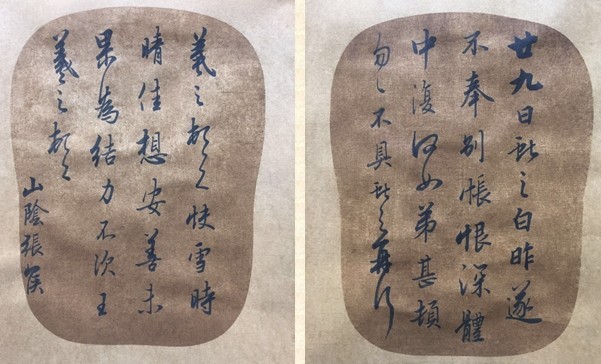 羲之頓首快雪時
晴佳想安善未
果為結力不次王
羲之頓首
山陰張侯
廿九日獻之白昨遂
不奉別悵恨深體
中復何如弟甚頓
匆匆不具獻之再拜